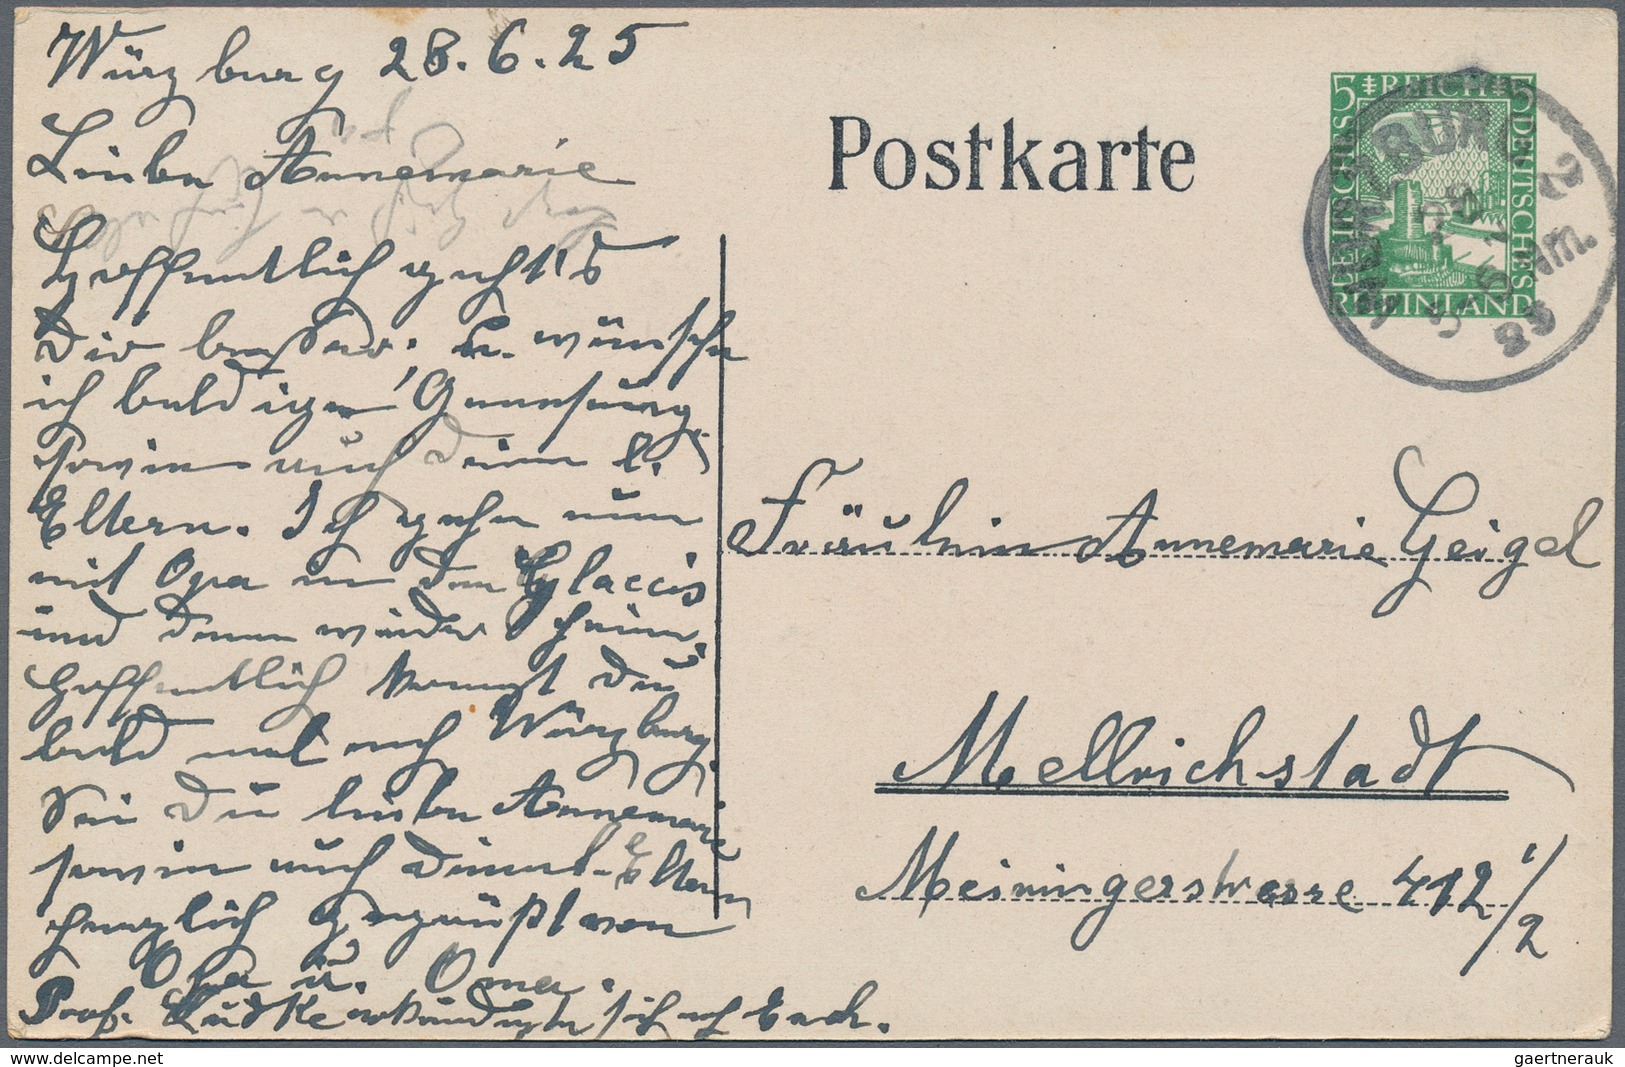 Würzburg 28.6.25
Liebe Annemarie
Hoffentlich geht's
Dir besser. u. wünsche
ich baldige Genesung,
sowie auch Deine l.
Eltern. Ich gehe nun
mit Opa in den Glaccis
und dann wieder heim.
Hoffentlich kommst Du
bald mal nach Würzburg.
Sei Du liebe Annemarie
sowie auch Deine l. Eltern
herzlich gegrüßt von
Opa u. Oma.
Prof. Lüdke erkundigte sich n. Euch.
Postkarte
5 REICH 5
DEUTSCHES
DEUTSCHES
RHEINLAND
WÜRZBURG 2
28
5-6 Nm.
25
Fräulein Annemarie Geigel
Mellrichstadt
Meiningerstrasse 412 1/2
delcampe.net
gaertnerauk